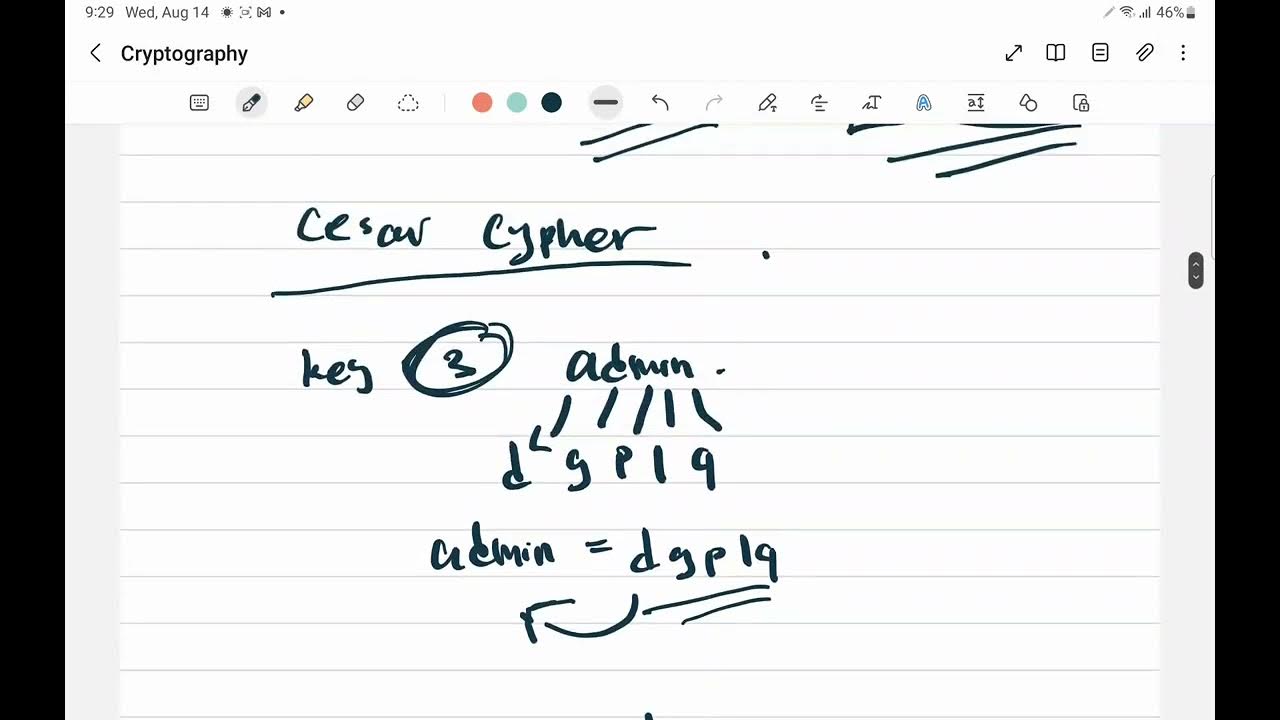 9:29 Wed, Aug 14 46%
Cryptography
Cesar Cypher
key 3 admin.
d g p l q
admin = dgplq